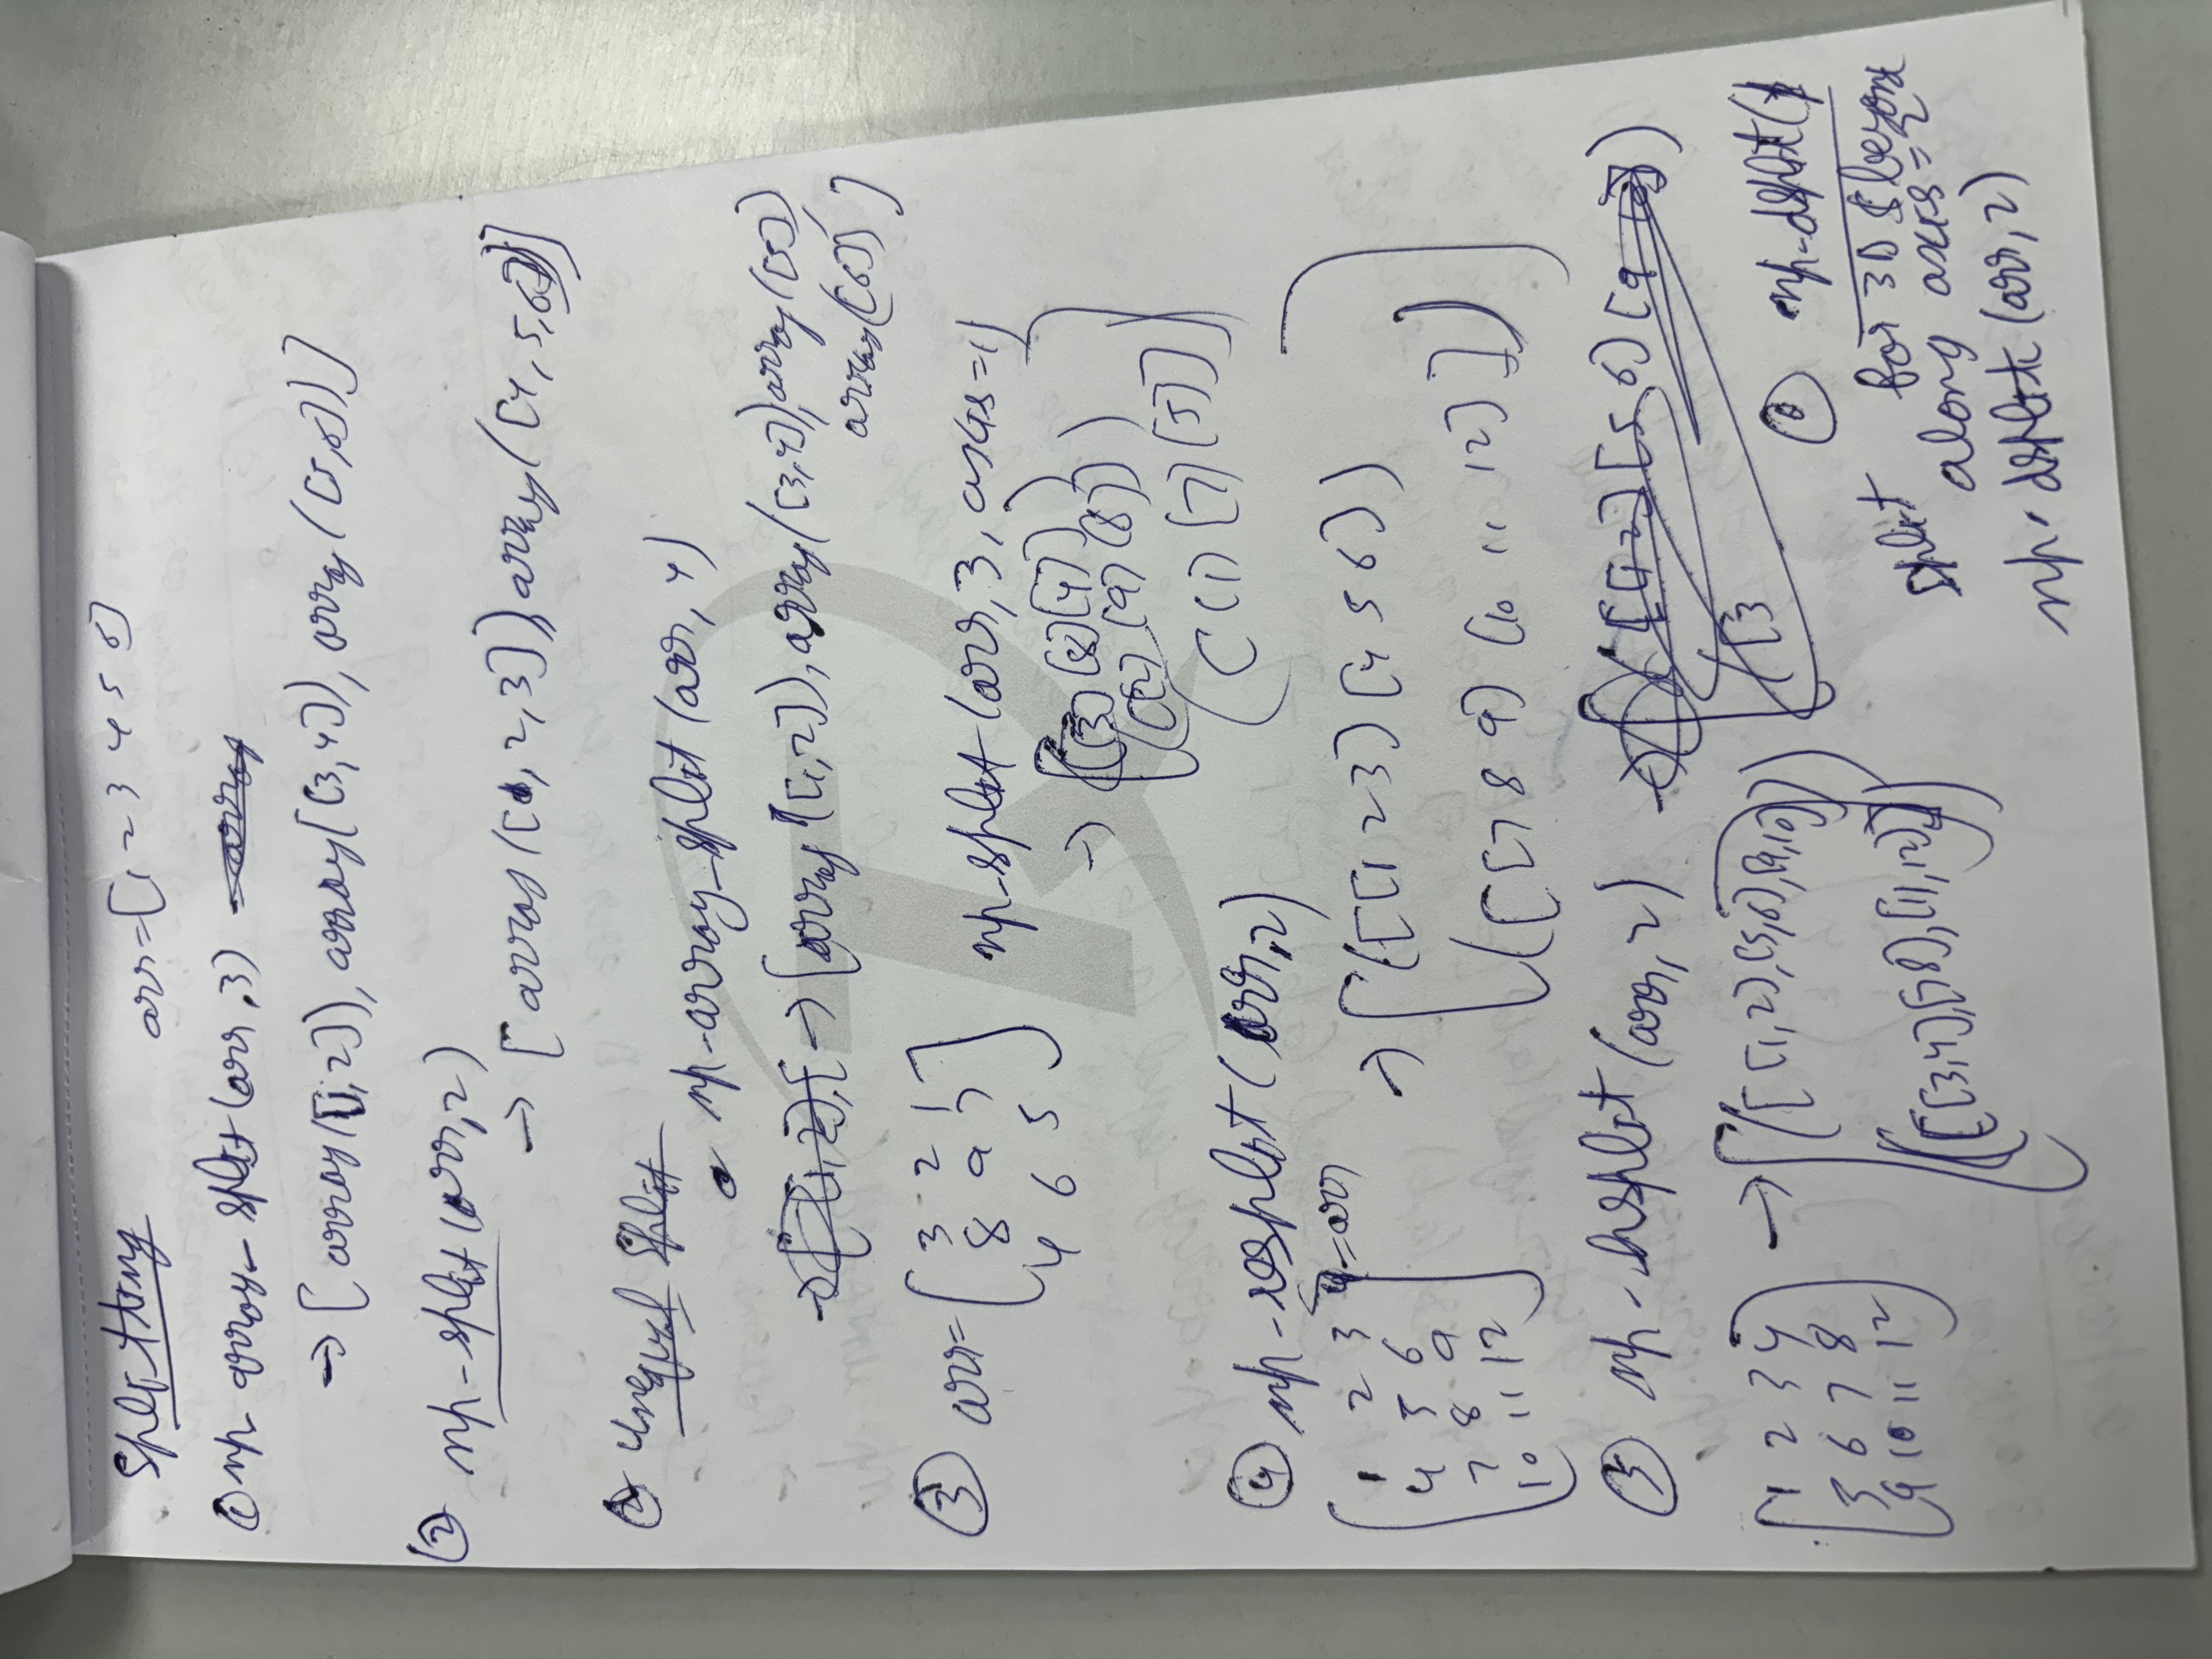 Splitting arr=[1 2 3 4 5 6]
① np array_split(arr,3)
→ [array([1,2]), array([3,4]), array([5,6])]
② np-split(arr,2)
→ [array([1,2,3]), array([4,5,6])]
Unequal split
np-array_split(arr, 4)
→ [array([1,2]), array([3,4]), array([5]),
array([6])]
③ arr= [3 2 1 np-split(arr,3, axis=1)
8 9 7
4 6 5]
→ [([[3] [8] [4]])
([[2] [9] [8]])
([[1] [7] [5]])]
④ np-vsplit(arr,2)
[1 2 3 =arr → [([[1 2 3] [4 5 6])
4 5 6
7 8 9 ([[7 8 9] [10 11 12]])]
10 11 12]
⑤ np-hsplit(arr,2)
[1 2 3 4 → [([[1,2],[5,6],[9,10]])
5 6 7 8
9 10 11 12] ([[3,4],[7 8],[11,12]])]
⑥ np-dsplit()
split for 3D & beyond
along axis=2
np.dsplit(arr,2)